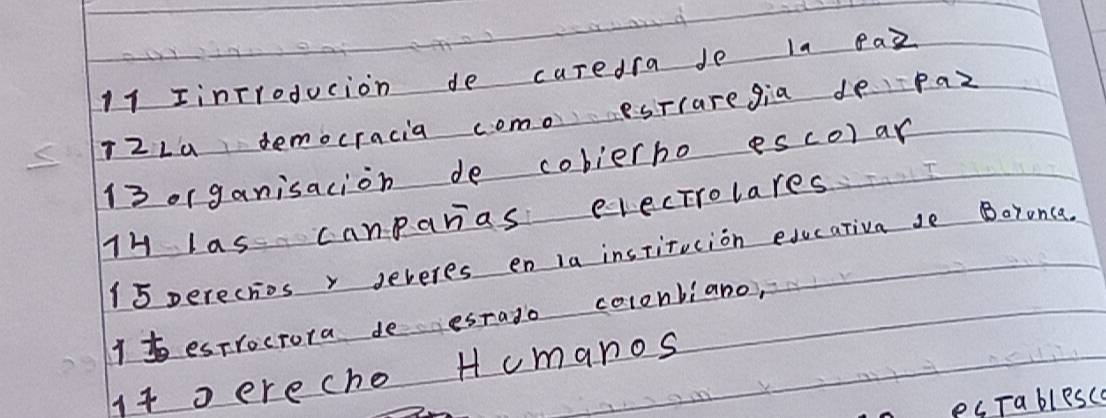 11 Iintroducion de catedra de la paz
12 La democracia como estrategia de paz
13 organisación de cobierno escolar
14 las canpañas electrolares
15 Derechos y deveres en la institución educativa de Boronca.
16 estroctora de estado colonbiano,
17 Derecho Humanos
establesc